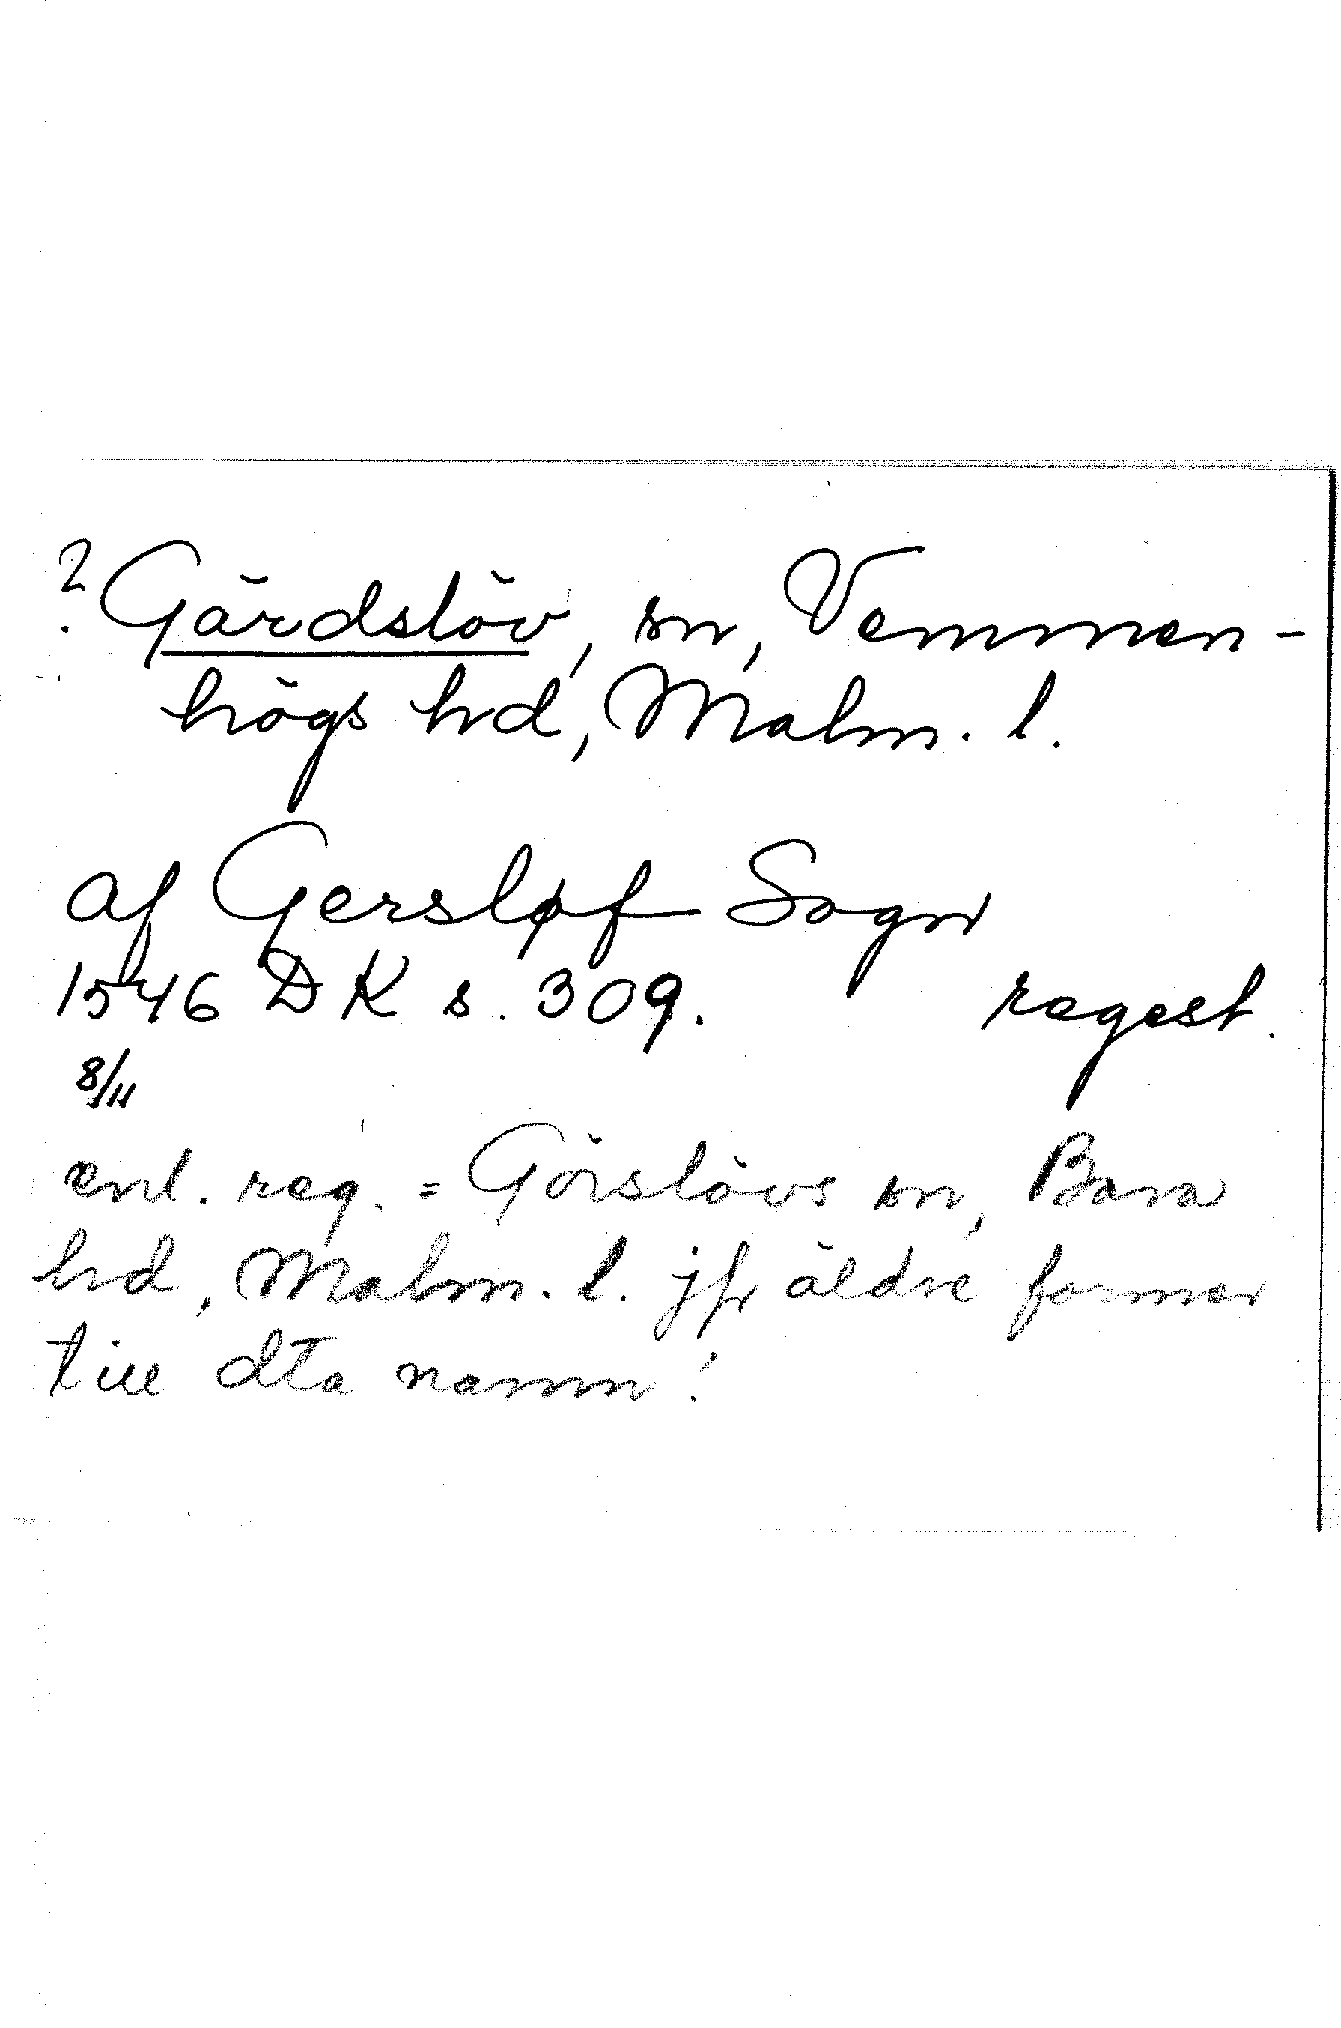 ? Gärdslöv, sn, Vemmen-
högs hd, Malm. l.
af Gersløf Sogn
1546 DK s. 309. regest.
8/11
enl. reg. = Görslövs sn, Bara
hd, Malm. l. jfr äldre former
till dta namn!